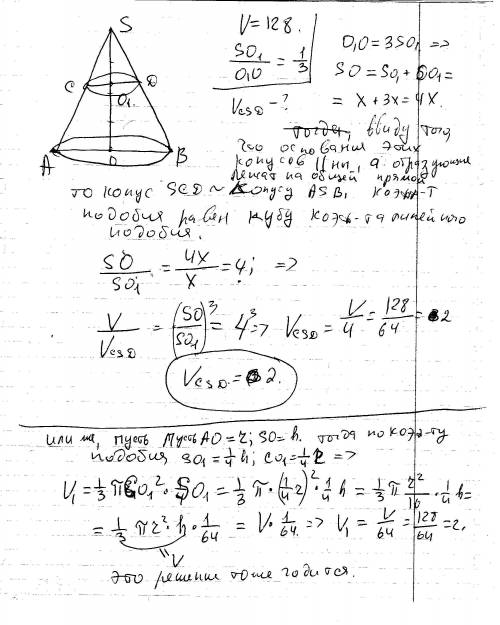 S
V = 128.
SO₁/O₁O = 1/3
O₁O = 3SO₁ =>
SO = SO₁ + OO₁ =
V_CSD - ?
= x + 3x = 4x.
C D
O₁
A O B
ввиду того
что основания этих
конусов ||ны, а образующие
лежат на общей прямой
то конус SCD ~ конусу ASB, коэф-т
подобия равен кубу коэф-та линейного
подобия.
SO/SO₁ = 4x/x = 4; =>
V/V_CSD = (SO/SO₁)³ = 4³ => V_CSD = V/4 = 128/64 = 2
V_CSD = 2.
или так, пусть Пусть AO = r; SO = h. тогда по коэф-ту
подобия SO₁ = 1/4 h; CO₁ = 1/4 r =>
V₁ = 1/3 π CO₁² · SO₁ = 1/3 π · (1/4 r)² · 1/4 h = 1/3 π r²/16 · 1/4 h =
= 1/3 π r² · h · 1/64 = V · 1/64 => V₁ = V/64 = 128/64 = 2.
= V
это решение тоже годится.